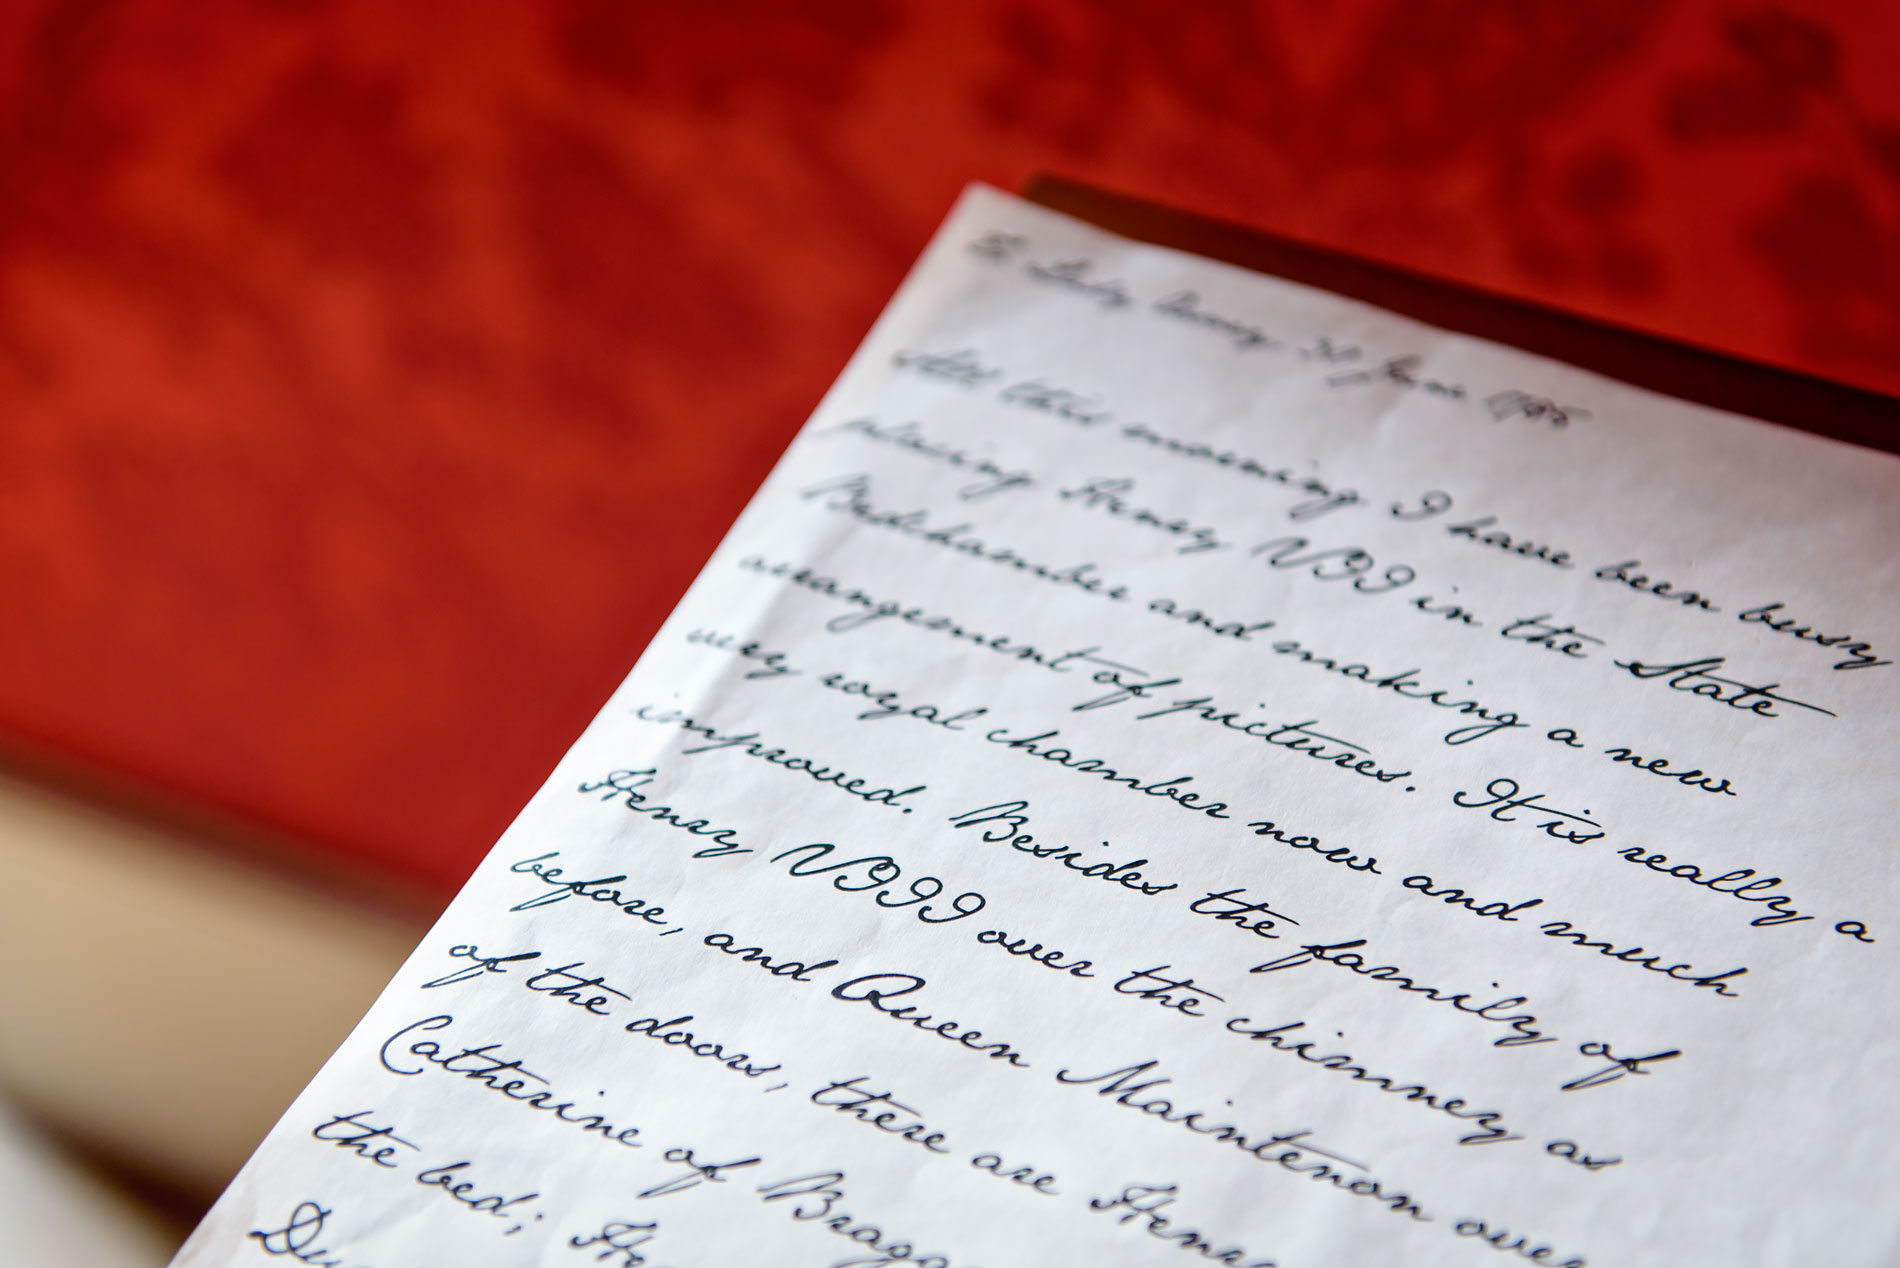 All this morning I have been busy
placing Henry VII in the State
Bedchamber and making a new
arrangement of pictures. It is really a
very royal chamber now and much
improved. Besides the family of
Henry VIII over the chimney as
before, and Queen Maintenon over
of the doors, there are Henry
Catherine of Braga
the bed; He
Du